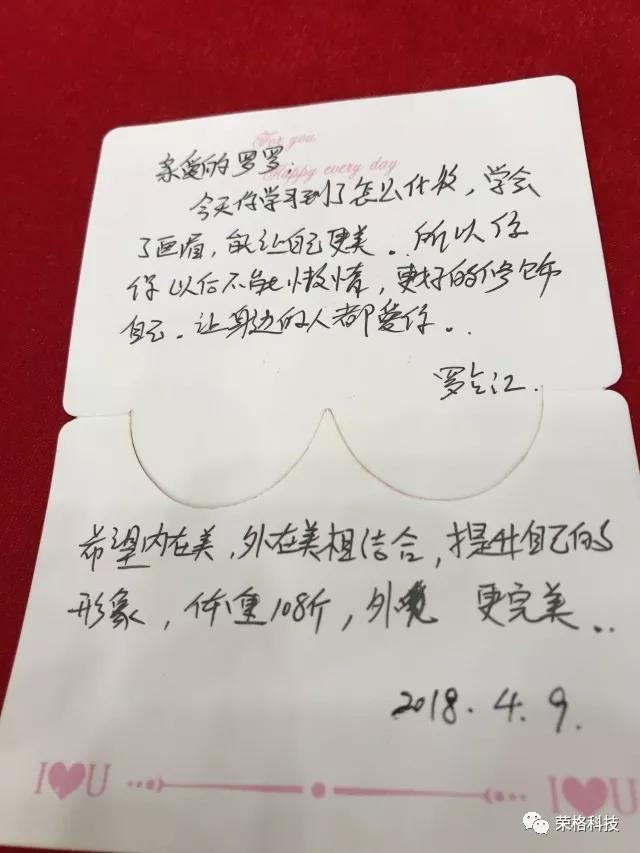 For you
Happy every day
亲爱的罗罗:
今天你学习到了怎么化妆,学会
了画眉,能让自己更美。所以你
你以后不能懒惰,更好的修饰
自己。让身边的人都爱你。.
罗江.
希望内在美,外在美相结合,提升自己的
形象,体重108斤,外 更完美..
2018.4.9.
I U
I U
荣格科技